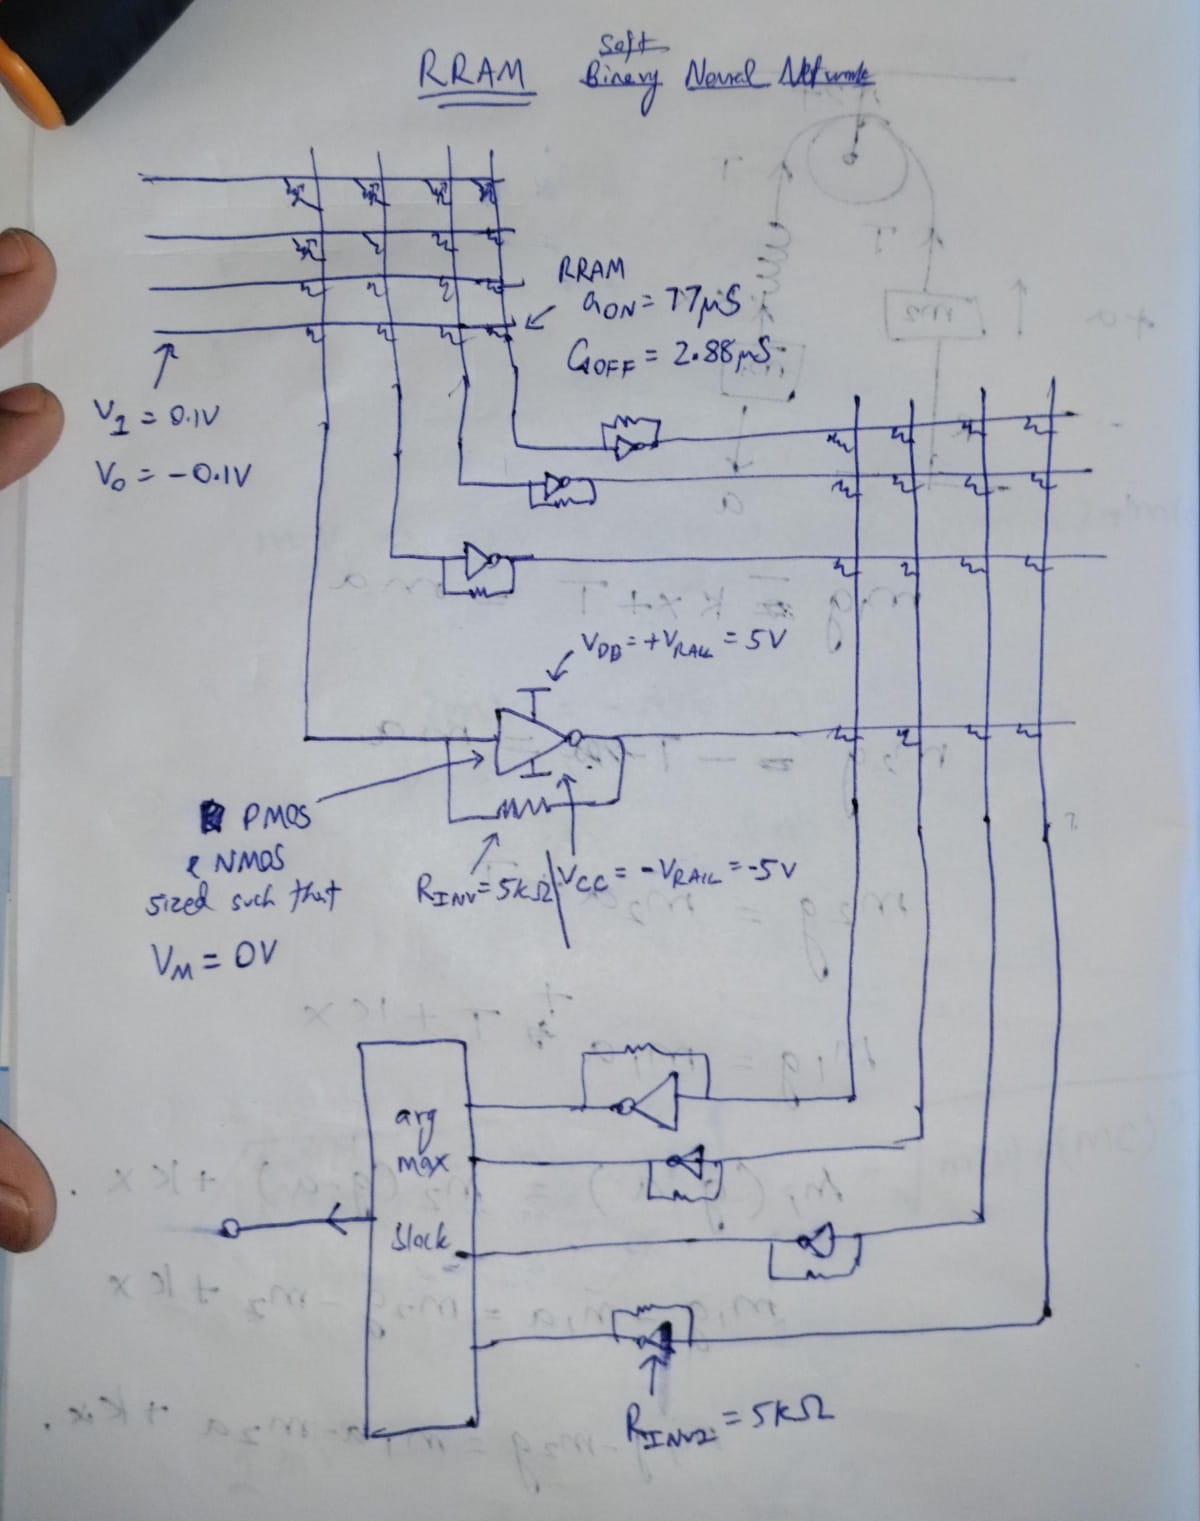 RRAM Soft
Binary Neural Network
RRAM
GON = 77μS
GOFF = 2.88μS
V1 = 0.1V
V0 = -0.1V
VDD = +VRAIL = 5V
PMOS
& NMOS
sized such that
VM = 0V
RINV = 5kΩ
VCC = -VRAIL = -5V
arg
max
block
RINV2 = 5kΩ